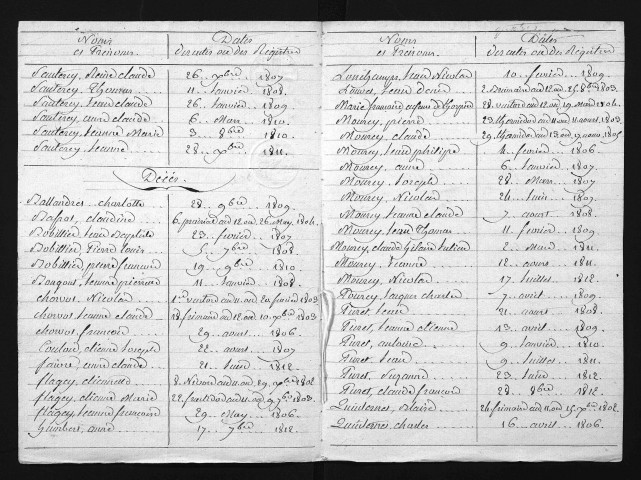 Noms et Prénoms. Dates des actes ou des Registres
Sauterey, Reine claude 26 xbre 1807
Sauterey, Thomas 11 Janvier 1808
Sauterey, Jean claude 26 Janvier 1809
Sauterey, anne claude 6 Mars 1810
Sauterey, Jeanne Marie 3 8bre 1810
Sauterey, Jeanne 28 xbre 1811
Décès.
Ballandret charlotte 28 9bre 1809
claudine 6 prairial an 12 ou 26 May 1804
Bobillier, Jean Baptiste 23 fevrier 1807
Bobillier, Pierre Louis 5 7bre 1808
Bobillier, pierre françois 19 9bre 1810
Jeanne pierrette 11 Janvier 1808
chorvot, Nicolas 1er ventose an 11 ou 20 fevrier 1803
chorvot, Jeanne claude 18 frimaire an 12 ou 10 xbre 1803
chorvot, françois 29 avril 1806
etienne Joseph 22 avril 1807
faivre, anne claude 21 Juin 1812
flagey, etiennette 8 Nivose an 11 ou 29 xbre 1802
flagey, etienne Marie 22 fructidor an 11 ou 9 7bre 1803
flagey, Jeanne francoise 29 May 1806
Humbert, anne 17 7bre 1812
Noms et Prénoms. Dates des actes ou des Registres
Lonchamps, Jean Nicolas 10 fevrier 1809
Louvet, Jean denis 2 Brumaire an 12 ou 25 8bre 1803
Marie francoise 28 ventose an 12 ou 19 Mars 1804
Mourey, pierre 23 thermidor an 11 ou 11 aout 1803
Mourey, claude 29 thermidor an 13 ou 17 aout 1805
Mourey, Jean philippe 4 fevrier 1806
Mourey, anne 6 Janvier 1807
Mourey, Joseph 28 Mars 1807
Mourey, Nicolas 24 Juin 1807
Mourey, Jeanne claude 7 aout 1808
Mourey, Jean Thomas 11 fevrier 1809
Mourey, claude 2 Mars 1811
Mourey, Jeanne 12 avril 1811
Mourey, Nicolas 17 Juillet 1812
Pourcy, Jacques charles 7 avril 1809
Puret, Jean 21 avril 1808
Puret, Jeanne etienne 13 avril 1809
Puret, antoine 9 Janvier 1810
Puret, Jean 9 Juillet 1811
Puret, Suzanne 23 Juin 1812
Puret, claude francois 28 8bre 1812
Quidornet, Blaise 24 frimaire an 11 ou 15 xbre 1802
Quidornet, charles 16 avril 1806